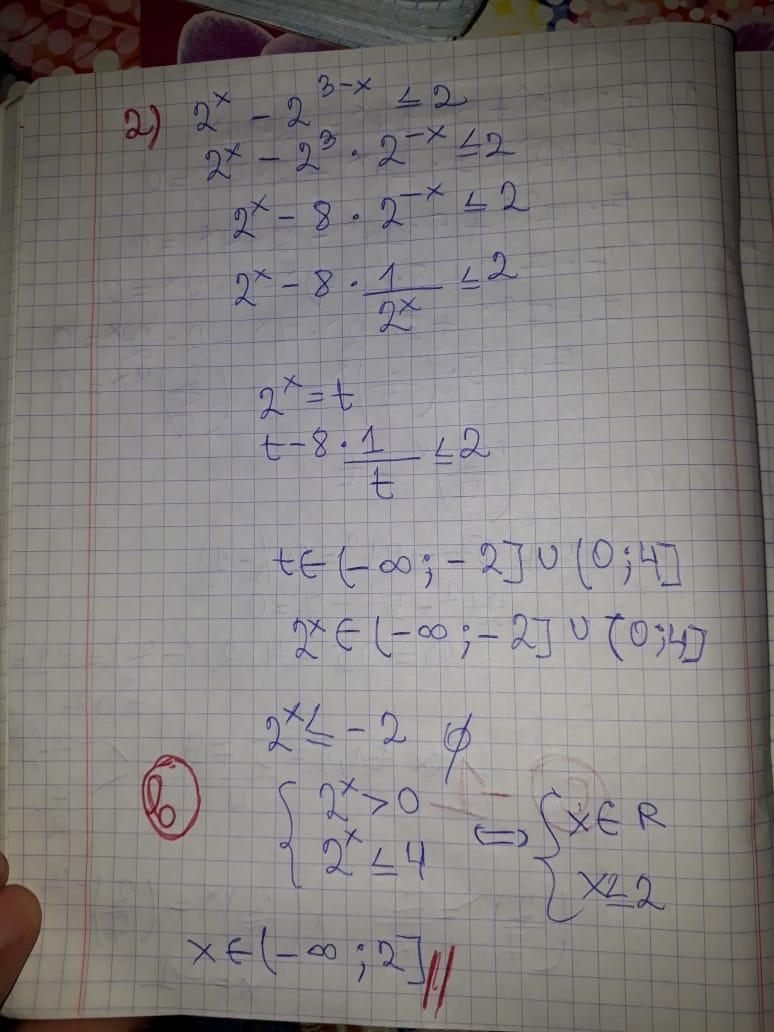 2) 2^x - 2^{3-x} ≤ 2
2^x - 2^3 · 2^{-x} ≤ 2
2^x - 8 · 2^{-x} ≤ 2
2^x - 8 · 1/2^x ≤ 2
2^x = t
t - 8 · 1/t ≤ 2
t ∈ (-∞; -2] ∪ (0; 4]
2^x ∈ (-∞; -2] ∪ (0; 4]
2^x ≤ -2 ∅
{ 2^x > 0 ⇔ { x ∈ R
2^x ≤ 4 x ≤ 2
x ∈ (-∞; 2]